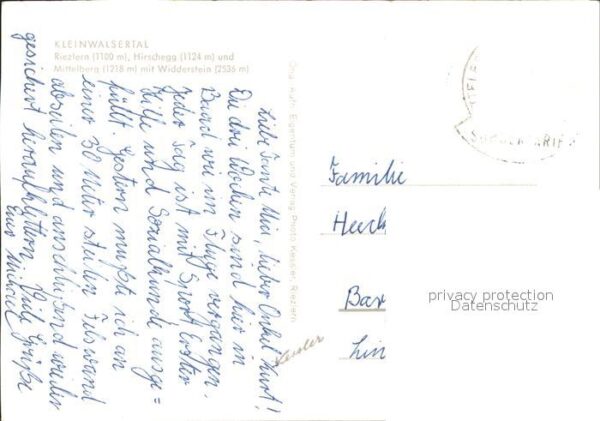 KLEINWALSERTAL
Riezlern (1100 m), Hirschegg (1124 m) und
Mittelberg (1218 m) mit Widderstein (2536 m)
Liebe Tante Mia, lieber Onkel Kurt!
Die drei Wochen sind hier in
Baad wie im Fluge vergangen.
Jeder Tag ist mit Sport
Hilfe und Sozialkunde ausge=
füllt. Gestern mußte ich an
einer 30 Meter steilen Felswand
abseilen und anschließend wieder
gesichert heraufklettern. Viele Grüße
Euer Michael
Orig. Aufn. Eigentum und Verlag Photo Kessler, Riezlern
Kessler
Familie
Heck
Bar
Lin
privacy protection
Datenschutz